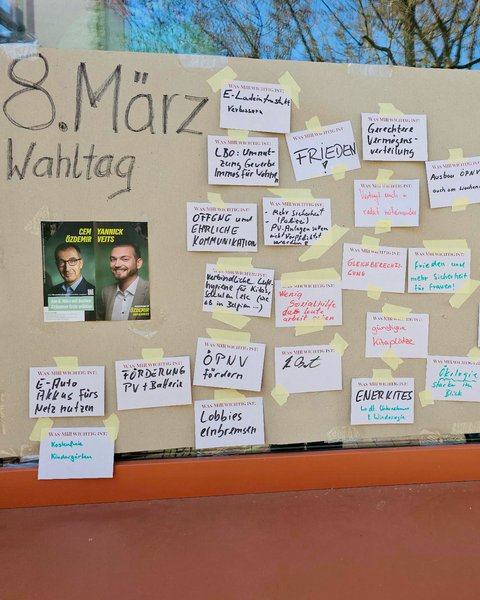 8. März
Wahltag
CEM
ÖZDEMIR
YANNICK
VEITS
WAS MIR WICHTIG IST:
E-Ladeinfrastrukt
verbessern
WAS MIR WICHTIG IST:
LBO: Umnut-
zung Gewerbe
Immos für Wohne
WAS MIR WICHTIG IST:
FRIEDEN
!
WAS MIR WICHTIG IST:
Gerechtere
Vermögens-
verteilung
WAS MIR WICHTIG IST:
Ausbau ÖPNV
auch am
WAS MIR WICHTIG IST:
Vertragt euch -
redet miteinander
WAS MIR WICHTIG IST:
OFFENE und
EHRLICHE
KOMMUNIKATION
WAS MIR WICHTIG IST:
- Mehr Sicherheit
(Polizei)
PV-Anlagen sollen
nicht Verpflichtet
werden!
WAS MIR WICHTIG IST:
GLEICHBERECHTIG-
UNG
WAS MIR WICHTIG IST:
Frieden und
mehr Sicherheit
für Frauen!
WAS MIR WICHTIG IST:
Verbindliche Luft-
hygiene für Kitas,
Schulen etc. (wie
ab in Belgien...)
WAS MIR WICHTIG IST:
Wenig
Sozialhilfe
dass Leute
arbeiten
WAS MIR WICHTIG IST:
günstigere
Kitaplätze
WAS MIR WICHTIG IST:
E-Auto
Akkus fürs
Netz nutzen
WAS MIR WICHTIG IST:
FÖRDERUNG
PV + Batterie
WAS MIR WICHTIG IST:
ÖPNV
fördern
WAS MIR WICHTIG IST:
WAS MIR WICHTIG IST:
ENERKITES
Unternehmen
WAS MIR WICHTIG IST:
Ökologie
stärker im
Blick
WAS MIR WICHTIG IST:
Lobbies
einbremsen
WAS MIR WICHTIG IST:
Kostenfreie
Kindergärten